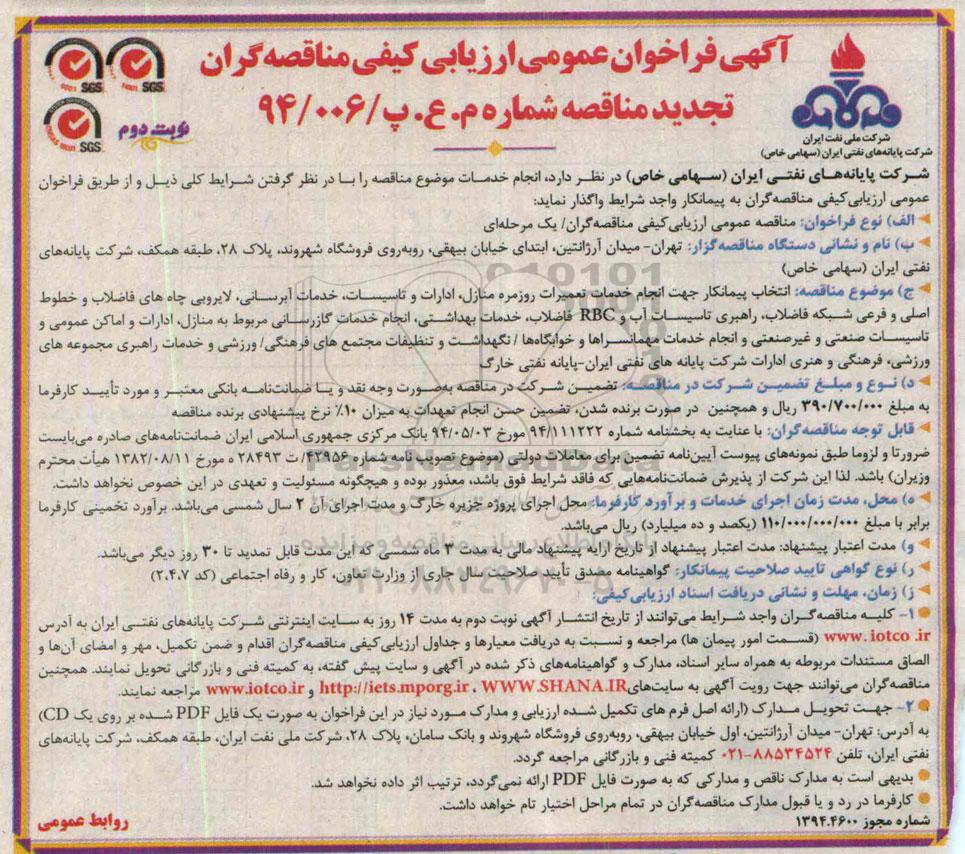 آگهی فراخوان عمومی ارزیابی کیفی مناقصه‌گران
تجدید مناقصه شماره م.ع.پ/۹۴/۰۰۶
نوبت دوم
SGS
SGS
SGS
شرکت ملی نفت ایران
شرکت پایانه‌های نفتی ایران (سهامی خاص)
شرکت پایانه‌های نفتی ایران (سهامی خاص) در نظر دارد، انجام خدمات موضوع مناقصه را با در نظر گرفتن شرایط کلی ذیل و از طریق فراخوان
عمومی ارزیابی کیفی مناقصه‌گران به پیمانکار واجد شرایط واگذار نماید:
الف) نوع فراخوان: مناقصه عمومی ارزیابی کیفی مناقصه‌گران/ یک مرحله‌ای
ب) نام و نشانی دستگاه مناقصه‌گزار: تهران- میدان آرژانتین، ابتدای خیابان بیهقی، روبه‌روی فروشگاه شهروند، پلاک ۲۸، طبقه همکف، شرکت پایانه‌های
نفتی ایران (سهامی خاص)
ج) موضوع مناقصه: انتخاب پیمانکار جهت انجام خدمات تعمیرات روزمره منازل، ادارات و تاسیسات، خدمات آبرسانی، لایروبی چاه های فاضلاب و خطوط
اصلی و فرعی شبکه فاضلاب، راهبری تاسیسات آب و RBC فاضلاب، خدمات بهداشتی، انجام خدمات گازرسانی مربوط به منازل، ادارات و اماکن عمومی و
تاسیسات صنعتی و غیرصنعتی و انجام خدمات مهمانسراها و خوابگاه‌ها / نگهداشت و تنظیفات مجتمع های فرهنگی/ ورزشی و خدمات راهبری مجموعه های
ورزشی، فرهنگی و هنری ادارات شرکت پایانه های نفتی ایران-پایانه نفتی خارگ
د) نوع و مبلغ تضمین شرکت در مناقصه: تضمین شرکت در مناقصه به‌صورت وجه نقد و یا ضمانت‌نامه بانکی معتبر و مورد تأیید کارفرما
به مبلغ ۳۹۰/۷۰۰/۰۰۰ ریال و همچنین در صورت برنده شدن، تضمین حسن انجام تعهدات به میزان ۱۰٪ نرخ پیشنهادی برنده مناقصه
قابل توجه مناقصه‌گران: با عنایت به بخشنامه شماره ۹۴/۱۱۱۲۲۲ مورخ ۹۴/۰۵/۰۳ بانک مرکزی جمهوری اسلامی ایران ضمانت‌نامه‌های صادره می‌بایست
ضرورتا و لزوما طبق نمونه‌های پیوست آیین‌نامه تضمین برای معاملات دولتی (موضوع تصویب نامه شماره ۴۲۹۵۶/ ت ۲۸۴۹۳ ه مورخ ۱۳۸۲/۰۸/۱۱ هیأت محترم
وزیران) باشد. لذا این شرکت از پذیرش ضمانت‌نامه‌هایی که فاقد شرایط فوق باشد، معذور بوده و هیچگونه مسئولیت و تعهدی در این خصوص نخواهد داشت.
ه) محل، مدت زمان اجرای خدمات و برآورد کارفرما: محل اجرای پروژه جزیره خارگ و مدت اجرای آن ۲ سال شمسی می‌باشد. برآورد تخمینی کارفرما
برابر با مبلغ ۱۱۰/۰۰۰/۰۰۰/۰۰۰ (یکصد و ده میلیارد) ریال می‌باشد.
و) مدت اعتبار پیشنهاد: مدت اعتبار پیشنهاد از تاریخ ارایه پیشنهاد مالی به مدت ۳ ماه شمسی که این مدت قابل تمدید تا ۳۰ روز دیگر می‌باشد.
ر) نوع گواهی تایید صلاحیت پیمانکار: گواهینامه مصدق تأیید صلاحیت سال جاری از وزارت تعاون، کار و رفاه اجتماعی (کد ۲،۴،۷)
ز) زمان، مهلت و نشانی دریافت اسناد ارزیابی‌کیفی:
۱- کلیه مناقصه‌گران واجد شرایط می‌توانند از تاریخ انتشار آگهی نوبت دوم به مدت ۱۴ روز به سایت اینترنتی شرکت پایانه‌های نفتی ایران به آدرس
www.iotco.ir (قسمت امور پیمان ها) مراجعه و نسبت به دریافت معیارها و جداول ارزیابی‌کیفی مناقصه‌گران اقدام و ضمن تکمیل، مهر و امضای آن‌ها و
الصاق مستندات مربوطه به همراه سایر اسناد، مدارک و گواهینامه‌های ذکر شده در آگهی و سایت پیش گفته، به کمیته فنی و بازرگانی تحویل نمایند. همچنین
مناقصه‌گران می‌توانند جهت رویت آگهی به سایت‌های http://iets.mporg.ir ، WWW.SHANA.IR و www.iotco.ir مراجعه نمایند.
۲- جهت تحویل مدارک (ارائه اصل فرم های تکمیل شده ارزیابی و مدارک مورد نیاز در این فراخوان به صورت یک فایل PDF شده بر روی یک CD)
به آدرس: تهران- میدان آرژانتین، اول خیابان بیهقی، روبه‌روی فروشگاه شهروند و بانک سامان، پلاک ۲۸، شرکت ملی نفت ایران، طبقه همکف، شرکت پایانه‌های
نفتی ایران، تلفن ۸۸۵۳۴۵۲۴-۰۲۱ کمیته فنی و بازرگانی مراجعه گردد.
بدیهی است به مدارک ناقص و مدارکی که به صورت فایل PDF ارائه نمی‌گردد، ترتیب اثر داده نخواهد شد.
کارفرما در رد و یا قبول مدارک مناقصه‌گران در تمام مراحل اختیار تام خواهد داشت.
شماره مجوز ۱۳۹۴.۴۶۰۰
روابط عمومی